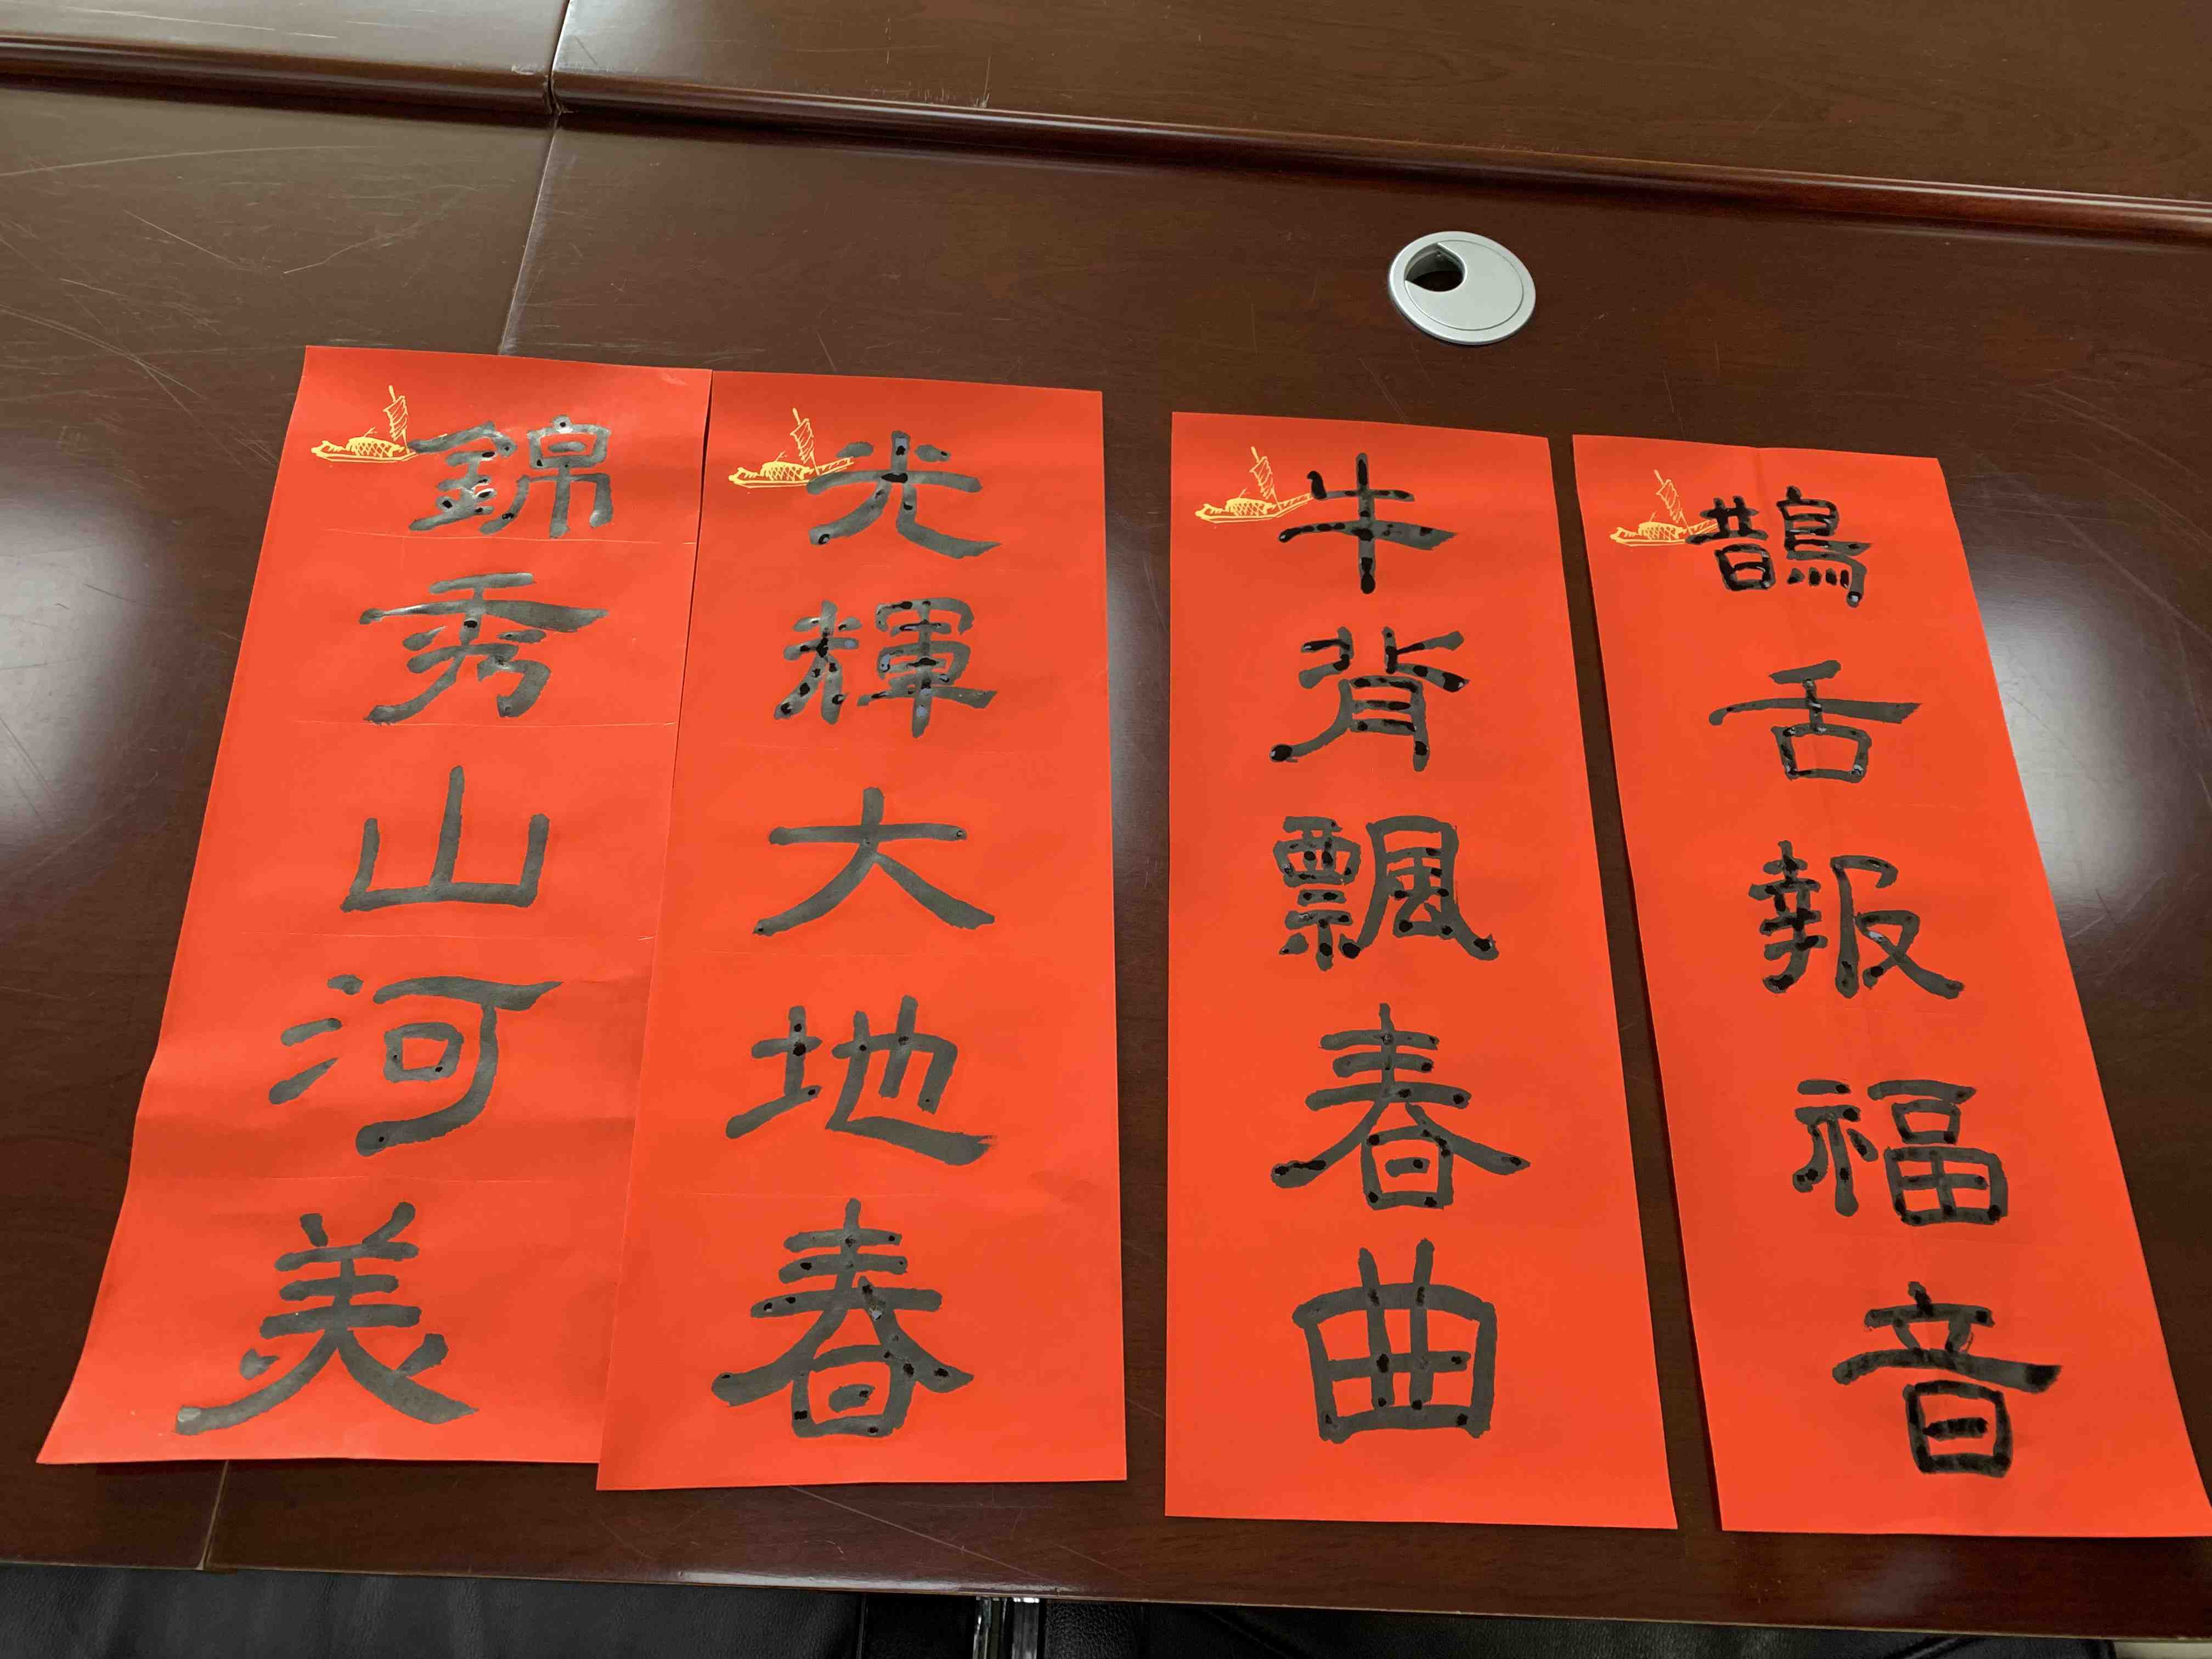 鵲舌報福音
牛背飄春曲
光輝大地春
錦秀山河美